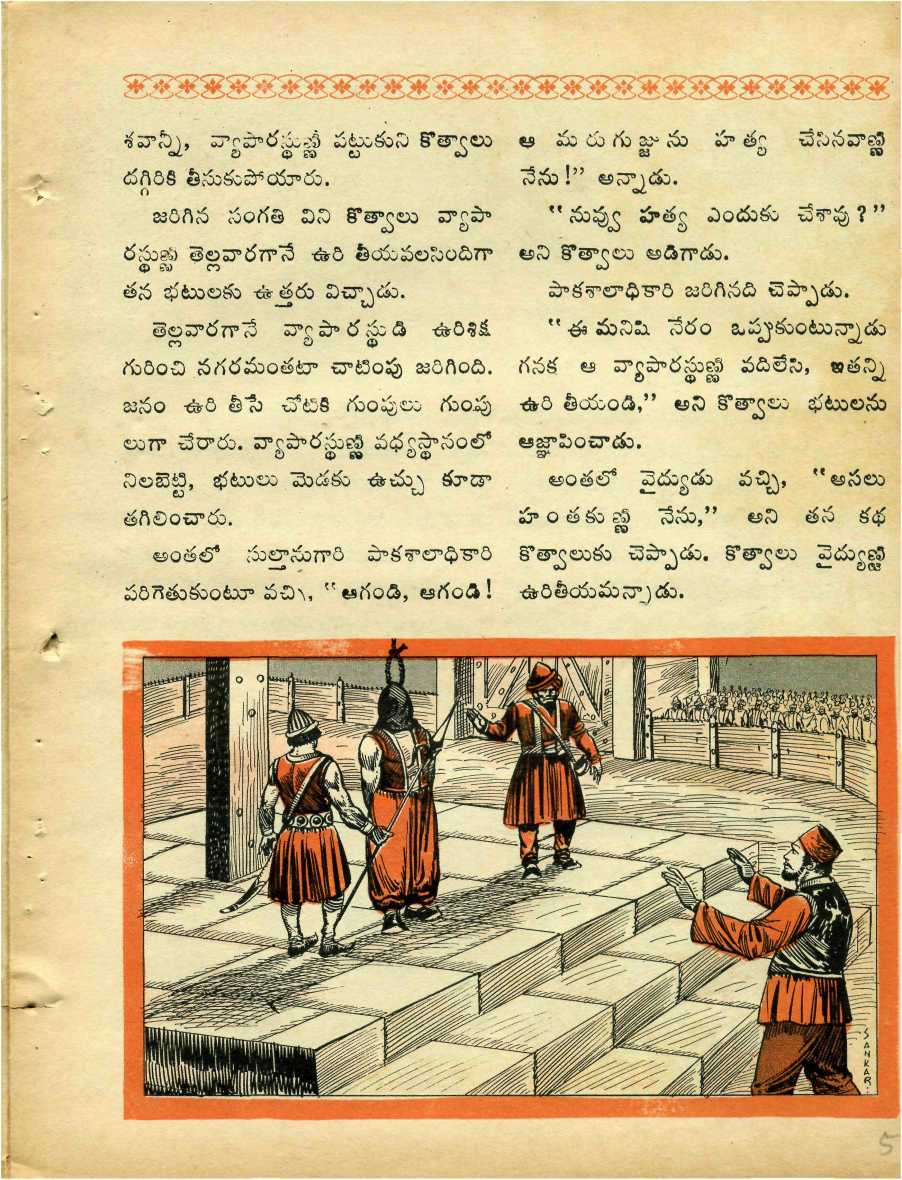 శవాన్నీ, వ్యాపారస్థుణ్ణీ పట్టుకుని కొత్వాలు
దగ్గిరికి తీసుకుపోయారు.
జరిగిన సంగతి విని కొత్వాలు వ్యాపా
రస్థుణ్ణి తెల్లవారగానే ఉరి తీయవలసిందిగా
తన భటులకు ఉత్తరు విచ్చాడు.
తెల్లవారగానే వ్యాపారస్థుడి ఉరిశిక్ష
గురించి నగరమంతటా చాటింపు జరిగింది.
జనం ఉరి తీసే చోటికి గుంపులు గుంపు
లుగా చేరారు. వ్యాపారస్థుణ్ణి వధ్యస్థానంలో
నిలబెట్టి, భటులు మెడకు ఉచ్చు కూడా
తగిలించారు.
అంతలో సుల్తానుగారి పాకశాలాధికారి
పరిగెతుకుంటూ వచ్చి, "ఆగండి, ఆగండి!
ఆ మరుగుజ్జును హత్య చేసినవాణ్ణి
నేను!" అన్నాడు.
"నువ్వు హత్య ఎందుకు చేశావు?"
అని కొత్వాలు అడిగాడు.
పాకశాలాధికారి జరిగినది చెప్పాడు.
"ఈ మనిషి నేరం ఒప్పుకుంటున్నాడు
గనక ఆ వ్యాపారస్థుణ్ణి వదిలేసి, ఇతన్ని
ఉరి తీయండి," అని కొత్వాలు భటులను
ఆజ్ఞాపించాడు.
అంతలో వైద్యుడు వచ్చి, "అసలు
హంతకుణ్ణి నేను," అని తన కథ
కొత్వాలుకు చెప్పాడు. కొత్వాలు వైద్యుణ్ణి
ఉరితీయమన్నాడు.
SANKAR
5